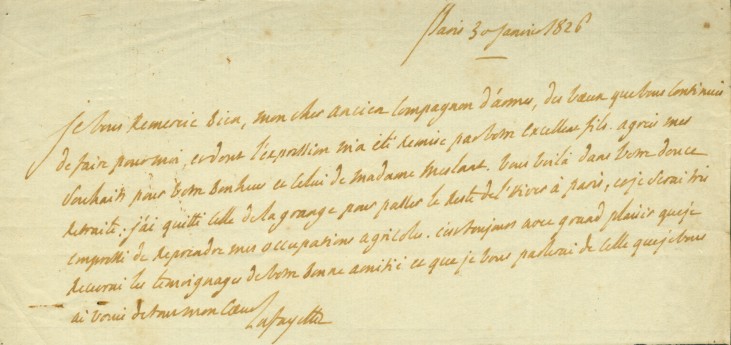 Paris 30 Janvier 1826
Je vous remercie bien, mon cher ancien Compagnon d'armes, des vœux que vous continuez
de faire pour moi, et dont l'expression m'a été remise par votre excellent fils. agréez mes
souhaits pour votre bonheur et celui de Madame Meslant. Vous voilà dans votre douce
retraite; j'ai quitté celle de la grange pour passer le reste de l'hiver à paris, et je serai très
empressé de reprendre mes occupations agricoles. c'est toujours avec grand plaisir que je
recevrai les témoignages de votre bonne amitié et que je vous parlerai de celle que je vous
ai vouée de tout mon Cœur
Lafayette